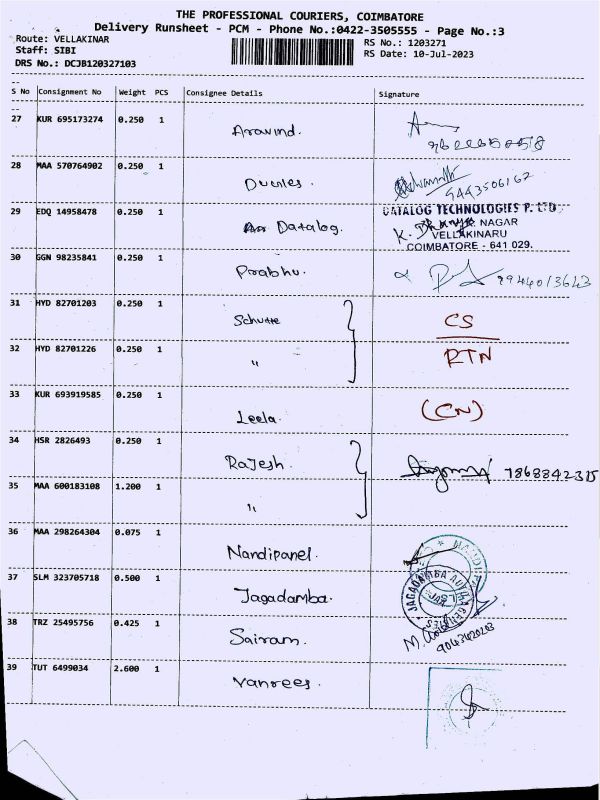 THE PROFESSIONAL COURIERS, COIMBATORE
Delivery Runsheet - PCM - Phone No.:0422-3505555 - Page No.:3
Route: VELLAKINAR
RS No.: 1203271
Staff: SIBI
RS Date: 10-Jul-2023
DRS No.: DCJB120327103
S No Consignment No Weight PCS Consignee Details Signature
27 KUR 695173274 0.250 1 Aravind.
28 MAA 570764902 0.250 1
9443506162
29 EDQ 14958478 0.250 1 Datalog.
DATALOG TECHNOLOGIES P. LTD
NAGAR
VELLAKINARU
COIMBATORE - 641 029.
30 GGN 98235841 0.250 1 Prabhu. 9944013643
31 HYD 82701203 0.250 1 Schutte CS
32 HYD 82701226 0.250 1 " RTN
33 KUR 693919585 0.250 1 Leela. (CN)
34 HSR 2826493 0.250 1 Rajesh. 7868842315
35 MAA 600183108 1.200 1 "
36 MAA 298264304 0.075 1 Nandipanel.
37 SLM 323705718 0.500 1 Jagadamba.
JAGADAMBA
38 TRZ 25495756 0.425 1 Sairam.
39 TUT 6499034 2.600 1 Vanrees.